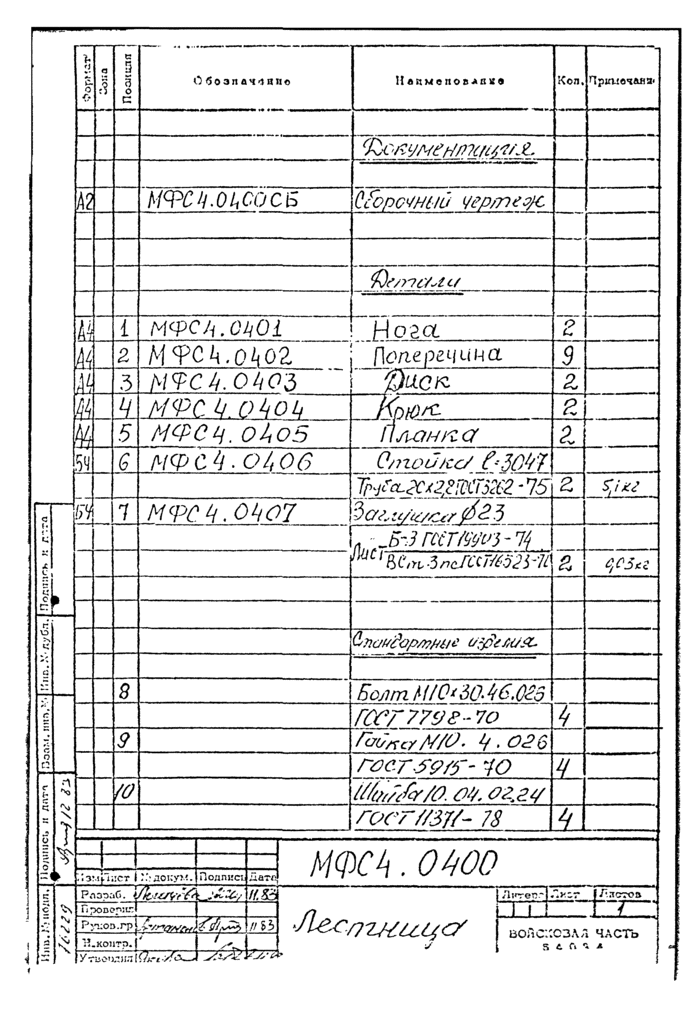 Формат Зона Позиция Обозначение Наименование Кол. Примечани
Документация
А2 МФС4.0400СБ Сборочный чертеж
Детали
А4 1 МФС4.0401 Нога 2
А4 2 МФС4.0402 Поперечина 9
А4 3 МФС4.0403 Диск 2
А4 4 МФС4.0404 Крюк 2
А4 5 МФС4.0405 Планка 2
БЧ 6 МФС4.0406 Стойка ℓ=3047
Труба 20х2,8 ГОСТ3262-75 2 5,1кг
БЧ 7 МФС4.0407 Заглушка ϕ23
Б-3 ГОСТ19903-74
Лист ВСт.3пс ГОСТ16523-70 2 0,03кг
Стандартные изделия
8 Болт М10х30.46.026
ГОСТ 7798-70 4
9 Гайка М10.4.026
ГОСТ 5915-70 4
10 Шайба 10.04.02.24
ГОСТ 11371-78 4
МФС4.0400
Изм Лист № докум. Подпись Дата
Разраб. 11.83
Проверил
Руков.гр 11.83
Н.контр.
Утвердил
Лестница
Литера Лист Листов
1
ВОЙСКОВАЯ ЧАСТЬ
Инв. № подл. Подпись и дата Взам. инв. № Инв. № дубл. Подпись и дата
16229
12.83